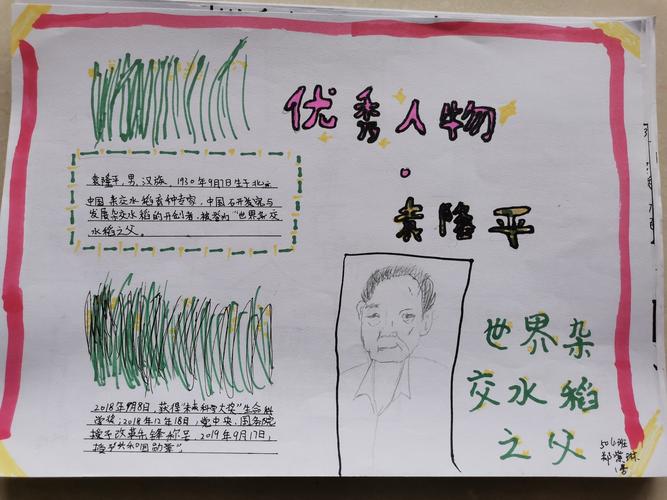 优秀人物
·
袁隆平
袁隆平,男,汉族,1930年9月7日生于北京
中国杂交水稻育种专家,中国研究与
发展杂交水稻的开创者,被誉为"世界杂交
水稻之父。
世界杂
交水稻
之父
2018年9月8日,获得未来科学大奖"生命科
学奖;2018年12月18日,党中央、国务院
授予改革先锋称号,2019年9月17日,
授予"共和国勋章"。
506班
郑紫琳
1号